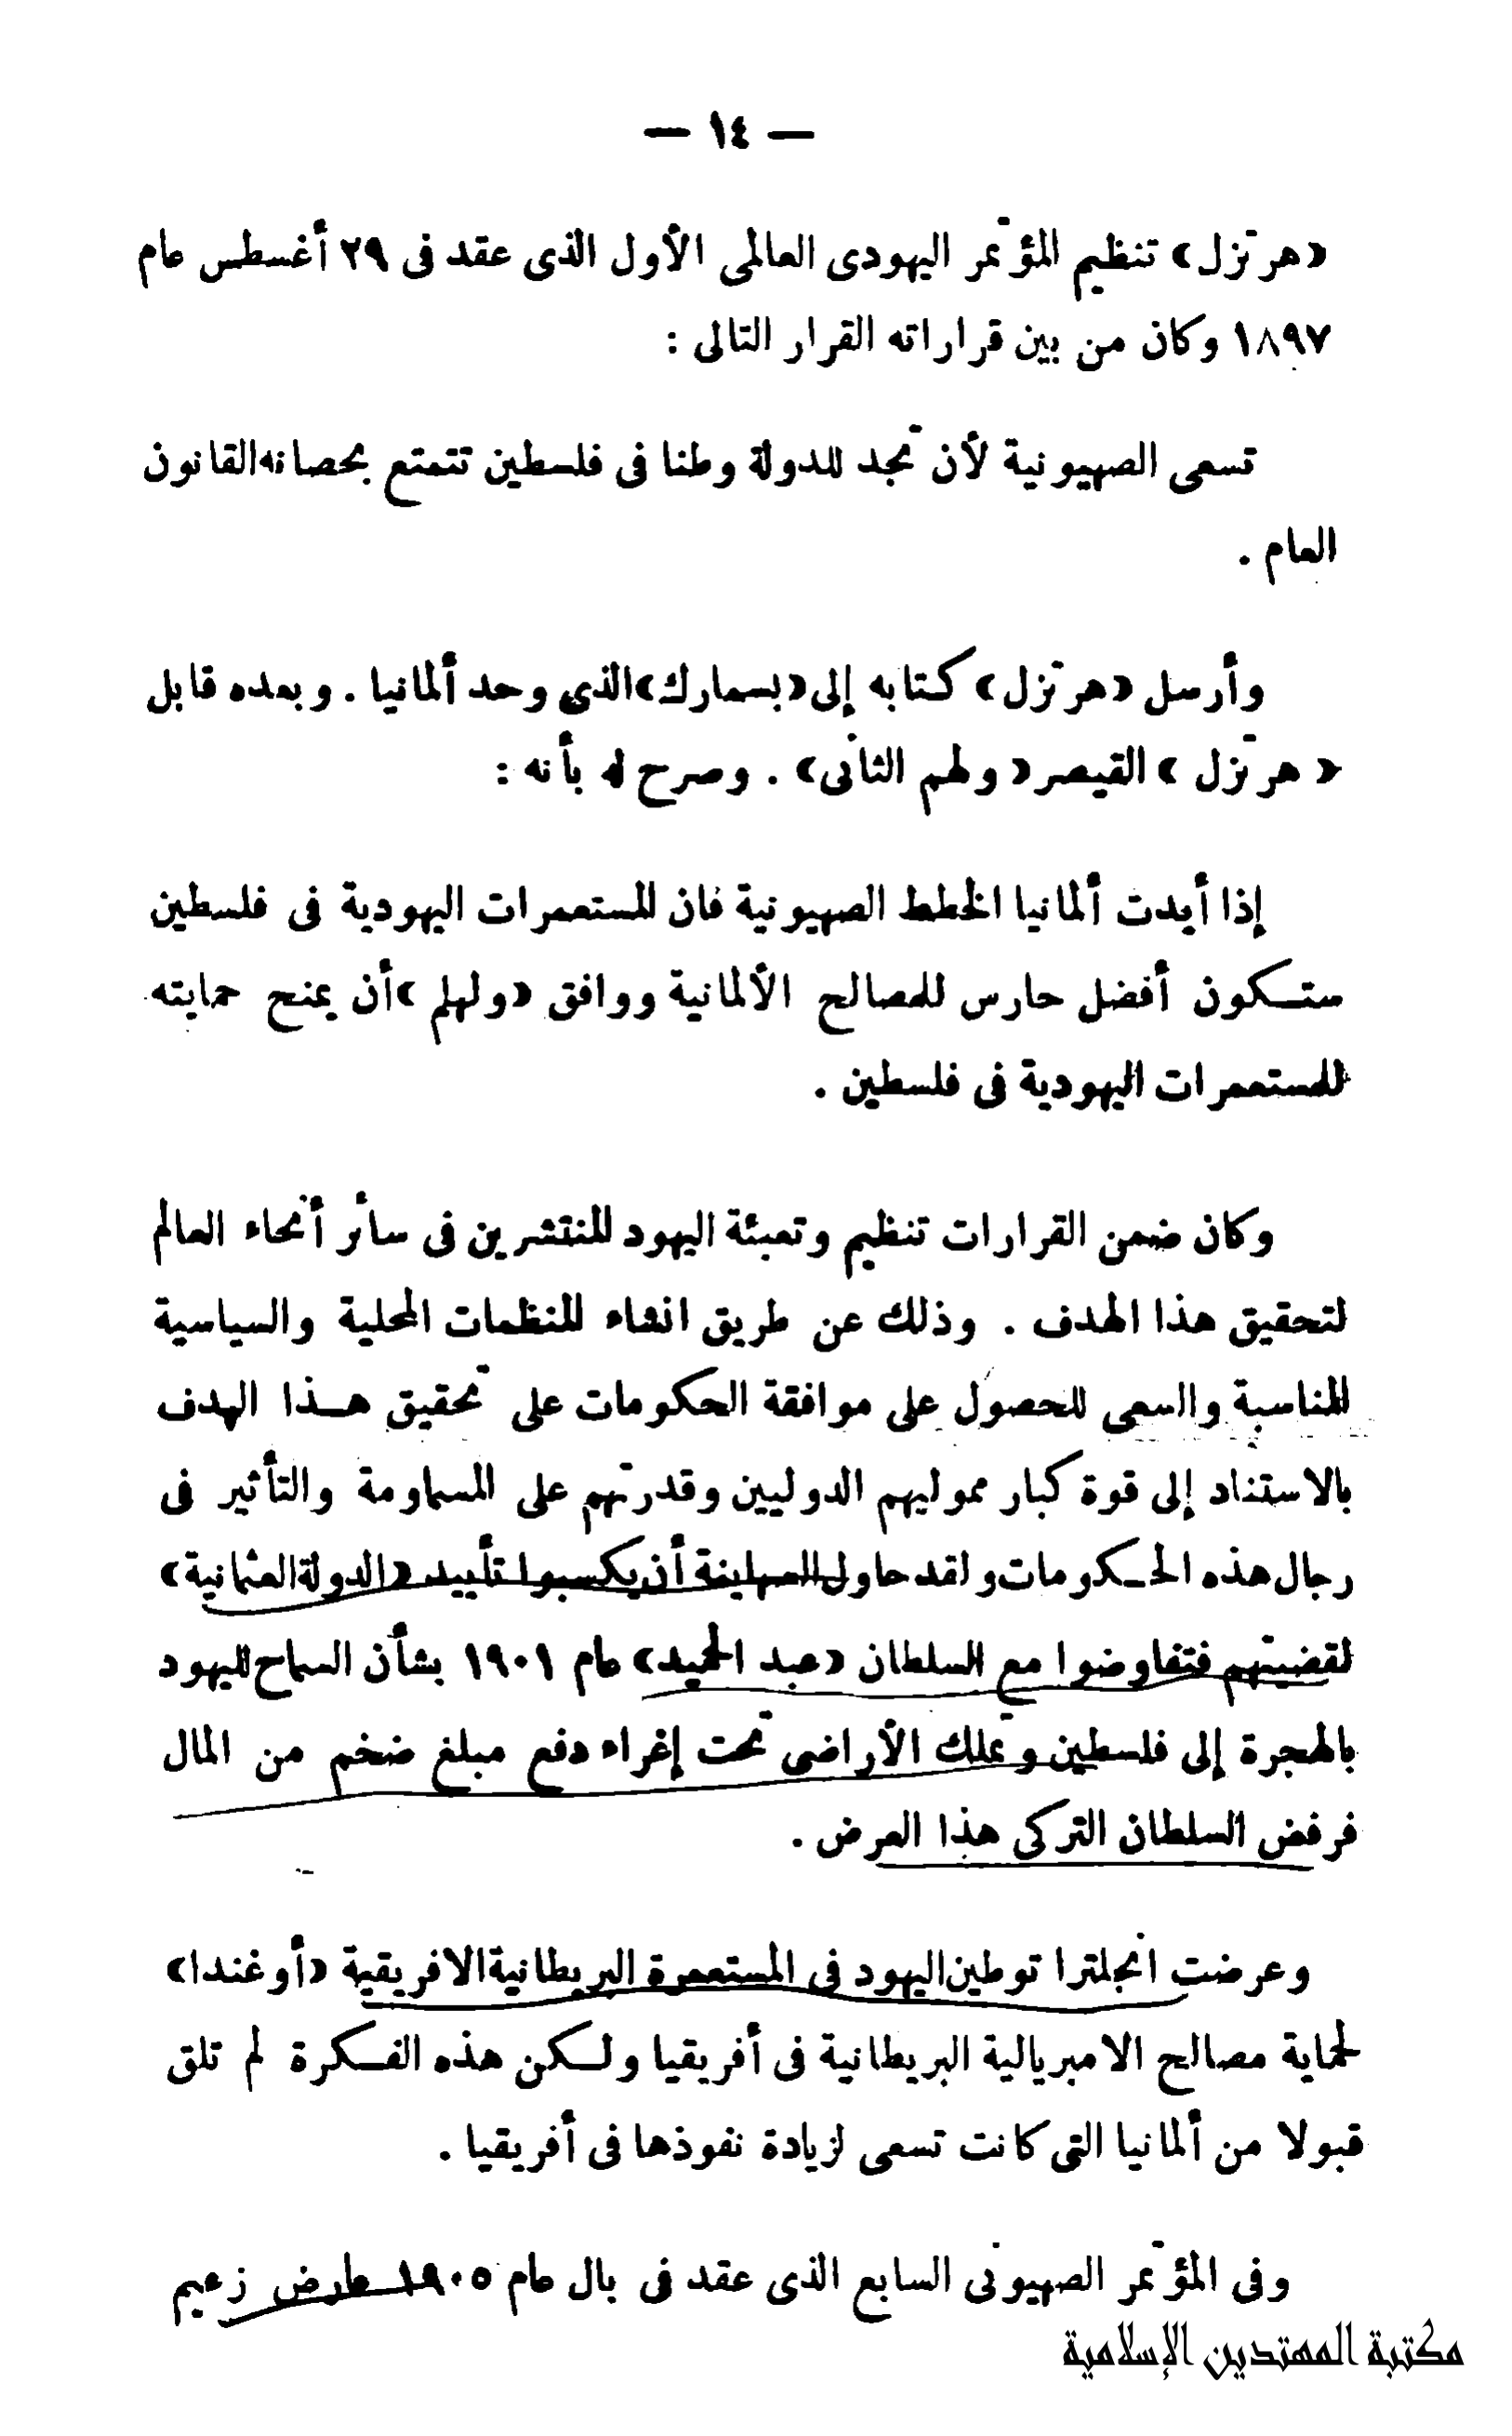 — ١٤ —
«هرتزل» تنظيم المؤتمر اليهودى العالمى الأول الذى عقد فى ٢٩ أغسطس عام
١٨٩٧ وكان من بين قراراته القرار التالى :
تسعى الصهيونية لأن تجد للدولة وطنا فى فلسطين تتمتع بحصانه القانون
العام .
وأرسل «هرتزل» كتابه إلى «بسمارك» الذى وحد ألمانيا . وبعده قابل
« هرتزل » القيصر « ولهم الثانى» . وصرح له بأنه :
إذا أيدت ألمانيا الخطط الصهيونية فان المستعمرات اليهودية فى فلسطين
ستكون أفضل حارس للمصالح الألمانية ووافق «ولهلم» أن يمنح حمايته
للمستعمرات اليهودية فى فلسطين .
وكان ضمن القرارات تنظيم وتعبئة اليهود المنتشرين فى سائر أنحاء العالم
لتحقيق هذا الهدف . وذلك عن طريق انشاء المنظمات المحلية والسياسية
المناسبة والسعى للحصول على موافقة الحكومات على تحقيق هـذا الهدف
بالاستناد إلى قوة كبار ممولهم الدوليين وقدرتهم على المساومة والتأثير فى
رجال هذه الحكومات ولقد حاول الصهاينة أن يكسبوا تأييد «الدولة العثمانية»
لقضيتهم فتفاوضوا مع السلطان «عبد الحميد» عام ١٩٠١ بشأن السماح لليهود
بالهجرة إلى فلسطين وتملك الأراضى تحت إغراء دفع مبلغ ضخم من المال
فرفض السلطان التركى هذا العرض .
وعرضت انجلترا توطين اليهود فى المستعمرة البريطانية الافريقية «أوغندا»
لحماية مصالح الامبريالية البريطانية فى أفريقيا ولكن هذه الفكرة لم تلق
قبولا من ألمانيا التى كانت تسعى لزيادة نفوذها فى أفريقيا .
وفى المؤتمر الصهيونى السابع الذى عقد فى بال عام ١٩٠٥ عارض زعيم
مكتبة المهتدين الإسلامية